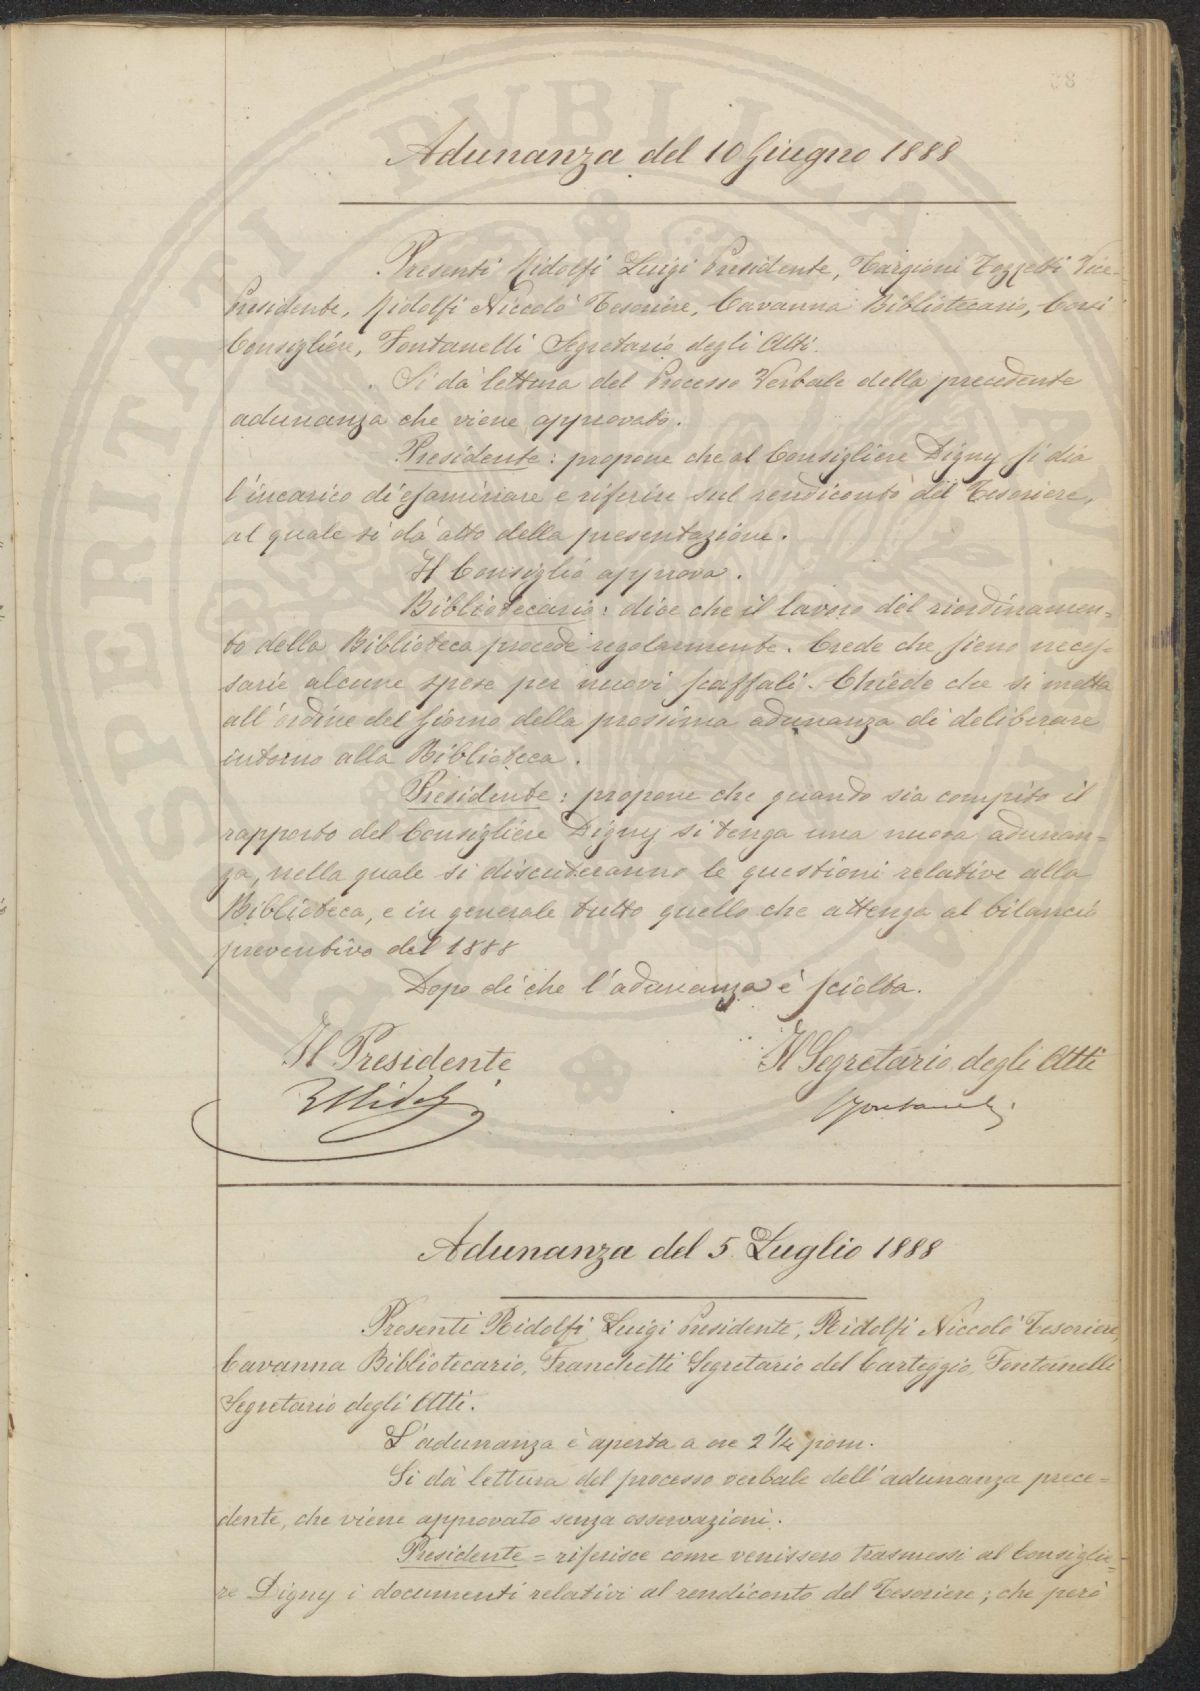 38
Adunanza del 10 Giugno 1888
Presenti Ridolfi Luigi Presidente, Targioni Tozzetti Vice-
Presidente, Ridolfi Niccolò Tesoriere, Cavanna Bibliotecario, Corsi
Consigliere, Fontanelli Segretario degli Atti.
Si dà lettura del Processo Verbale della precedente
adunanza che viene approvato.
Presidente: propone che al Consigliere Digny si dia
l'incarico di esaminare e riferire sul rendiconto del Tesoriere,
al quale si dà atto della presentazione.
Il Consiglio approva.
Bibliotecario: dice che il lavoro del riordinamen-
to della Biblioteca procede regolarmente. Crede che sieno neces-
sarie alcune spese per nuovi scaffali. Chiede che si metta
all'ordine del Giorno della prossima adunanza di deliberare
intorno alla Biblioteca.
Presidente: propone che quando sia compito il
rapporto del Consigliere Digny si tenga una nuova adunan-
za, nella quale si discuteranno le questioni relative alla
Biblioteca, e in generale tutto quello che attenga al bilancio
preventivo del 1888
Dopo di che l'adunanza è sciolta.
Il Presidente Il Segretario degli Atti
LRidolfi Fontanelli
Adunanza del 5 Luglio 1888
Presenti Ridolfi Luigi Presidente, Ridolfi Niccolò Tesoriere,
Cavanna Bibliotecario, Franchetti Segretario del Carteggio, Fontanelli
Segretario degli Atti.
L'adunanza è aperta a ore 2 1/4 pom.
Si dà lettura del processo verbale dell'adunanza prece=
dente, che viene approvato senza osservazioni.
Presidente = riferisce come venissero trasmessi al Consiglie=
re Digny i documenti relativi al rendiconto del Tesoriere; che però